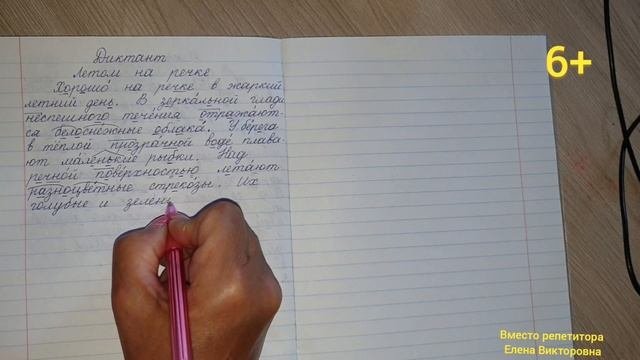 Диктант
Летом на речке
Хорошо на речке в жаркий
летний день. В зеркальной глади
неспешного течения отражают-
ся белоснежные облака. У берега
в тёплой прозрачной воде плава-
ют маленькие рыбки. Над
речной поверхностью летают
разноцветные стрекозы. Их
голубые и зелен
6+
Вместо репетитора
Елена Викторовна